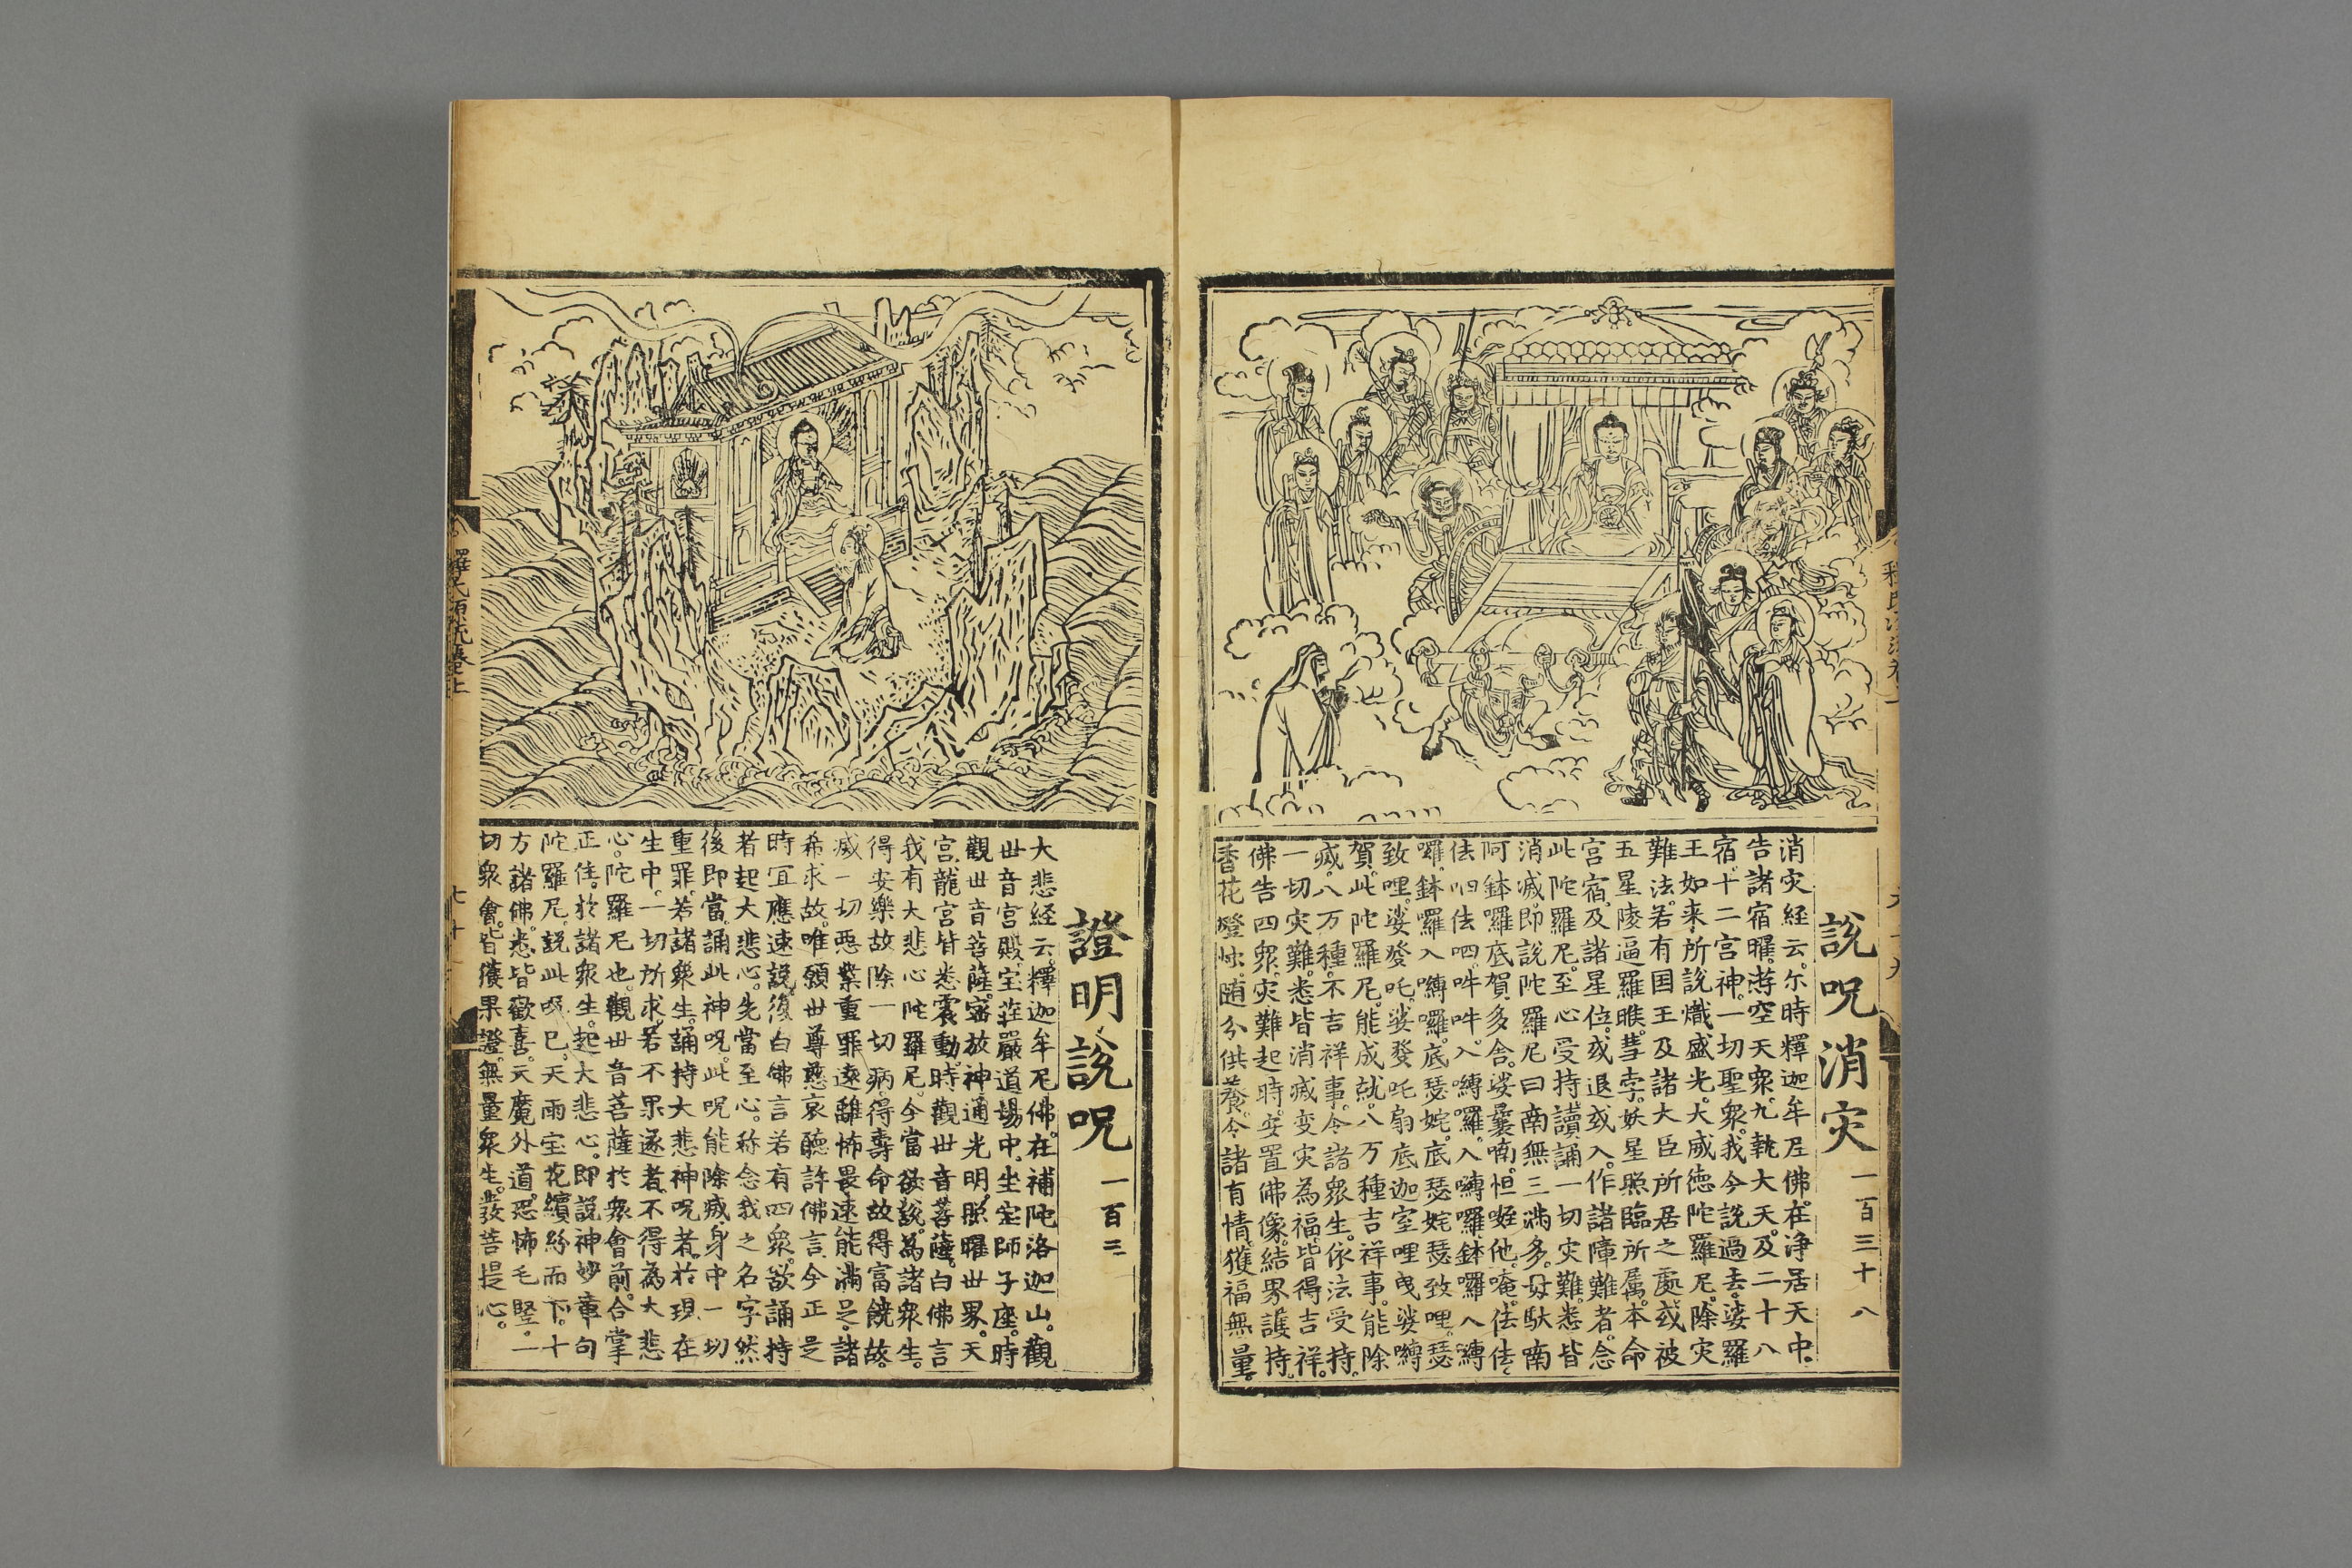 說呪消灾 一百三十八
消灾経云。尔時釋迦牟尼佛。在浄居天中。
告諸宿曜。遊空天衆。九執大天。及二十八
宿。十二宫神。一切聖衆。我今説過去。娑羅
王如来所説熾盛光。大威徳陀羅尼。除灾
難法。若有国王及諸大臣所居之䖏。或被
五星陵逼。羅睺。彗孛。妖星照臨所属。本命
宫宿。及諸星位。或退或入。作諸障難者。念
此陀羅尼。至心受持讀誦。一切灾難。悉皆
消滅。即説陀羅尼曰。南無三滿多。母馱喃
阿鉢羅底賀。多舎。娑曩喃。怛姪他。唵。佉佉
佉呬佉呬。吽吽。入嚩囉。入嚩囉。鉢囉入嚩
囉。鉢囉入嚩囉。底瑟姹。底瑟姹。瑟致哩。瑟
致哩。娑癹吒。娑癹吒。扇底迦室哩曳。娑嚩
賀。此陀羅尼。能成就。八万種吉祥事。能除
滅。八万種。不吉祥事。令諸衆生。依法受持。
一切灾難。悉皆消滅。变灾為福。皆得吉祥。
佛告四衆。灾難起時。安置佛像。結界護持。
香花燈灺。随分供養。令諸有情。獲福無量。
證明說呪 一百三
大悲経云。釋迦牟尼佛。在補陀洛迦山。觀
世音宫殿。宝莊嚴道場中。坐宝師子座。時
觀世音菩薩。密放神通光明。照曜世界。天
宫龍宫。皆悉震動。時觀世音菩薩。白佛言
我有大悲心陀羅尼。今當欲説。為諸衆生。
得安樂故。除一切病。得壽命故。得富饒故。
滅一切惡業重罪。遠離怖畏。速能滿足。諸
希求故。唯願世尊慈哀聽許。佛言。今正是
時。宜應速説。後白佛言。若有四衆。欲誦持
者。起大悲心。先當至心。称念我之名字。然
後即當。誦此神呪。此呪能除滅身中一切
重罪。若諸衆生。誦持大悲神呪者。於現在
生中。一切所求。若不果遂者。不得為大悲
心。陀羅尼也。觀世音菩薩。於衆會前。合掌
正住。於諸衆生。起大悲心。即説神妙章句
陀羅尼。説此呪已。天雨宝花。繽紛而下。十
方諸佛。悉皆歡喜。天魔外道。恐怖毛竪。一
切衆會。皆獲果證。無量衆生。發菩提心。
釋氏源流卷上
七十